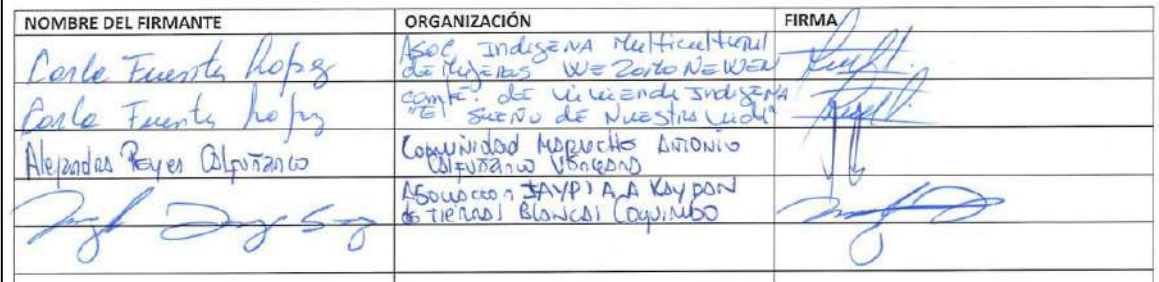 NOMBRE DEL FIRMANTE ORGANIZACIÓN FIRMA
Carla Fuentes López Asoc Indígena Multicultural
de Mujeres WE ZOMO NEWEN
Carla Fuentes López comité de vivienda Indígena
"El Sueño de Nuestra
Alejandra Reyes Calfuñanco Comunidad Mapuche Antonio
Calfuñanco Vergara
Asociacion JAYPI A A KAY PAN
de Tierras Blancas Coquimbo